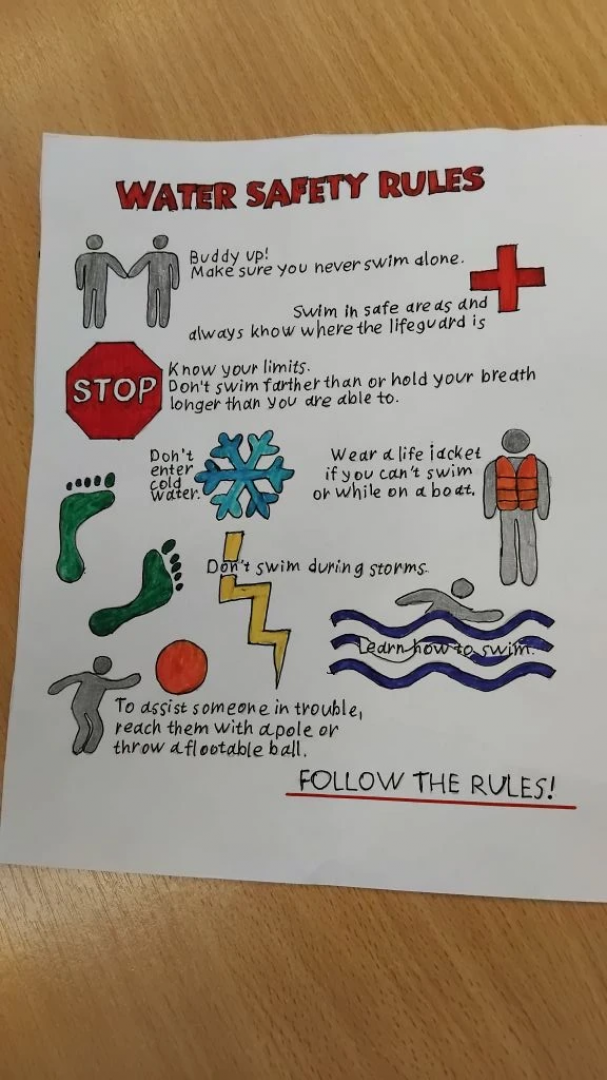 WATER SAFETY RULES
Buddy up!
Make sure you never swim alone.
Swim in safe areas and
always know where the lifeguard is
STOP
Know your limits.
Don't swim farther than or hold your breath
longer than you are able to.
Don't
enter
cold
water.
Wear a life jacket
if you can't swim
or while on a boat.
Don't swim during storms.
Learn how to swim.
To assist someone in trouble,
reach them with a pole or
throw a floatable ball.
FOLLOW THE RULES!